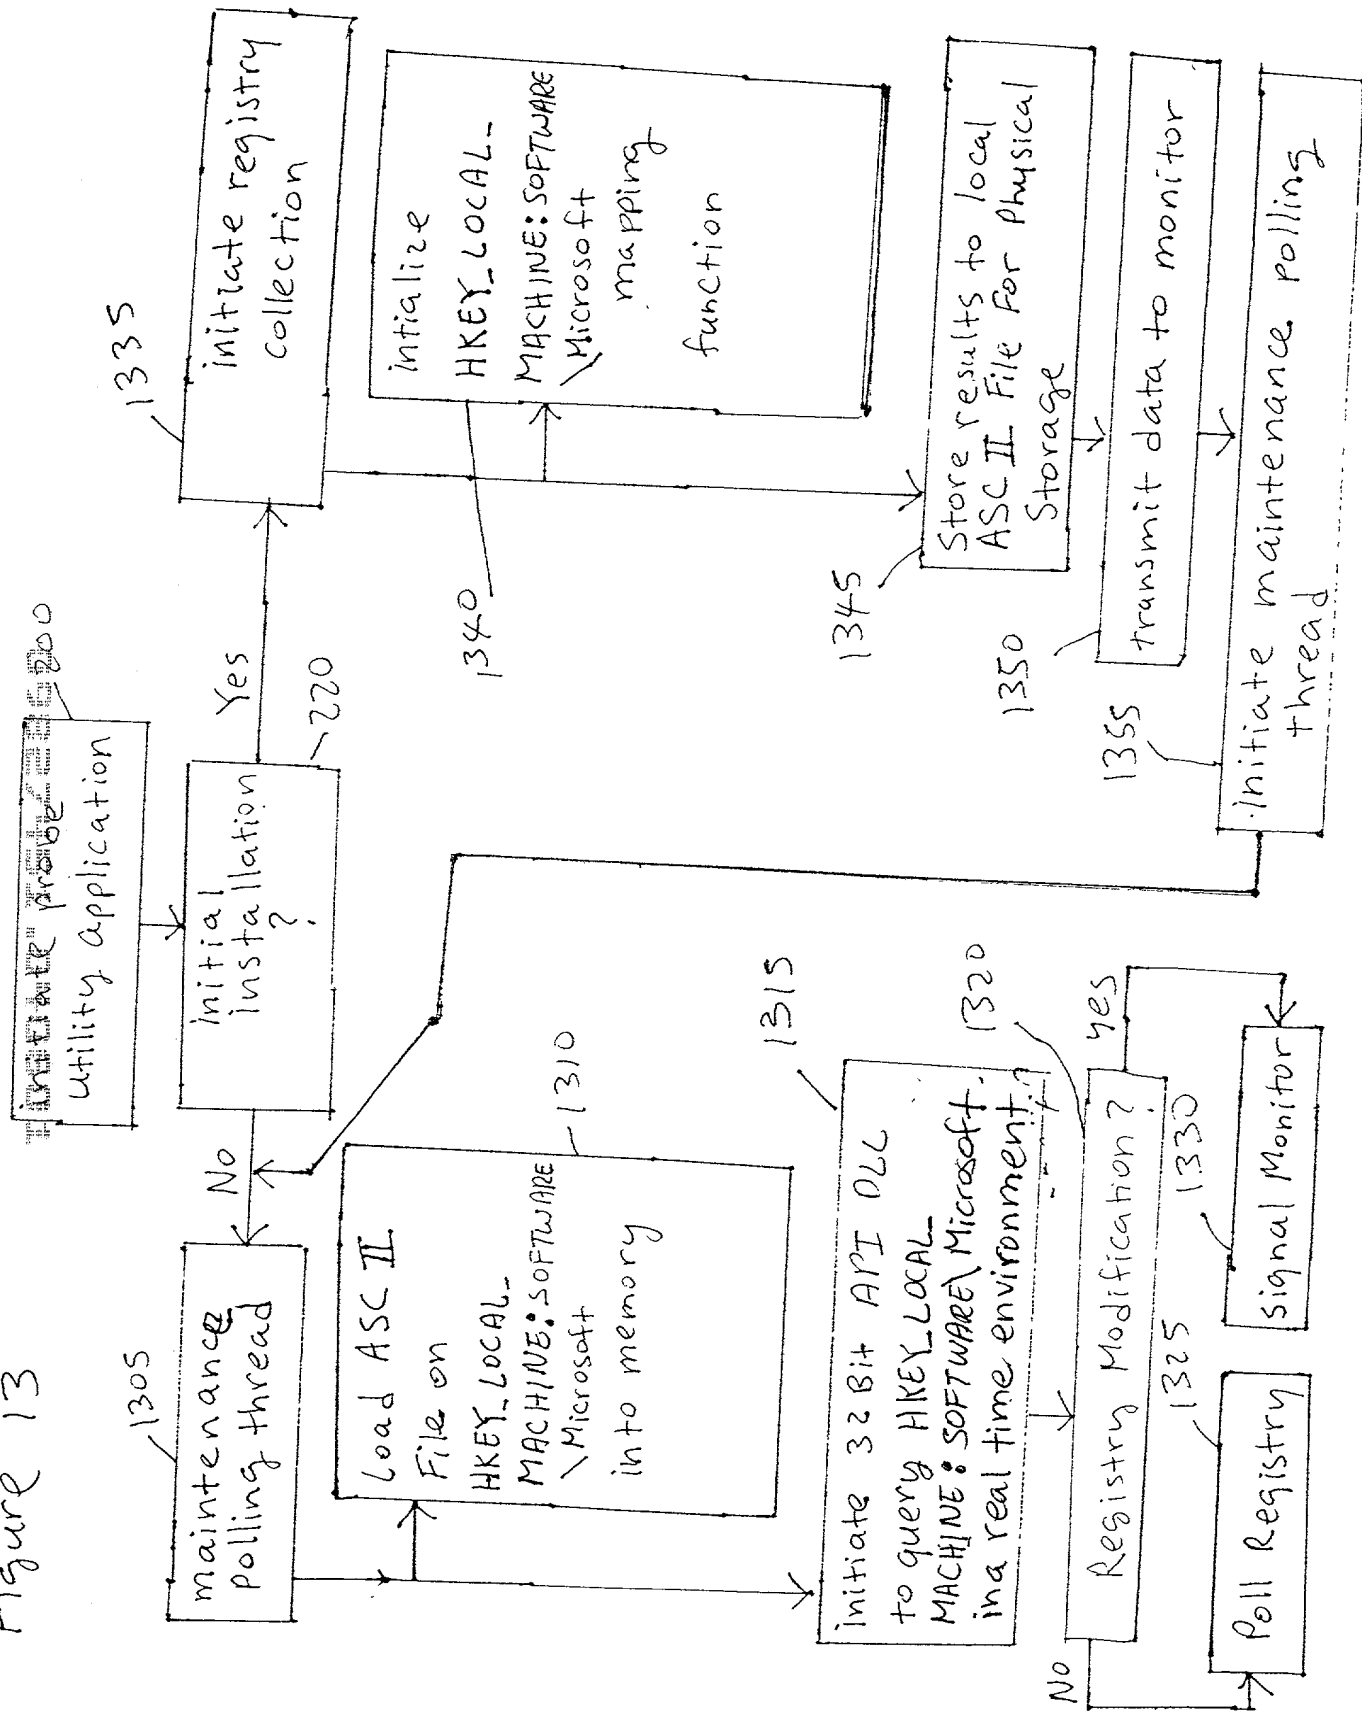 Figure 13
initiate probe
utility application
200
initial
installation
?
220
No
Yes
maintenance
polling thread
1305
Load ASC II
File on
HKEY_LOCAL_
MACHINE:SOFTWARE
\Microsoft
into memory
1310
initiate 32 Bit API DLL
to query HKEY_LOCAL_
MACHINE:SOFTWARE\Microsoft.
in a real time environment.
1315
Registry Modification?
1320
No
yes
Poll Registry
1325
signal Monitor
1330
initiate registry
collection
1335
intialize
HKEY_LOCAL_
MACHINE:SOFTWARE
\Microsoft
mapping
function
1340
Store results to local
ASC II File For Physical
Storage
1345
transmit data to monitor
1350
initiate maintenance polling
thread
1355